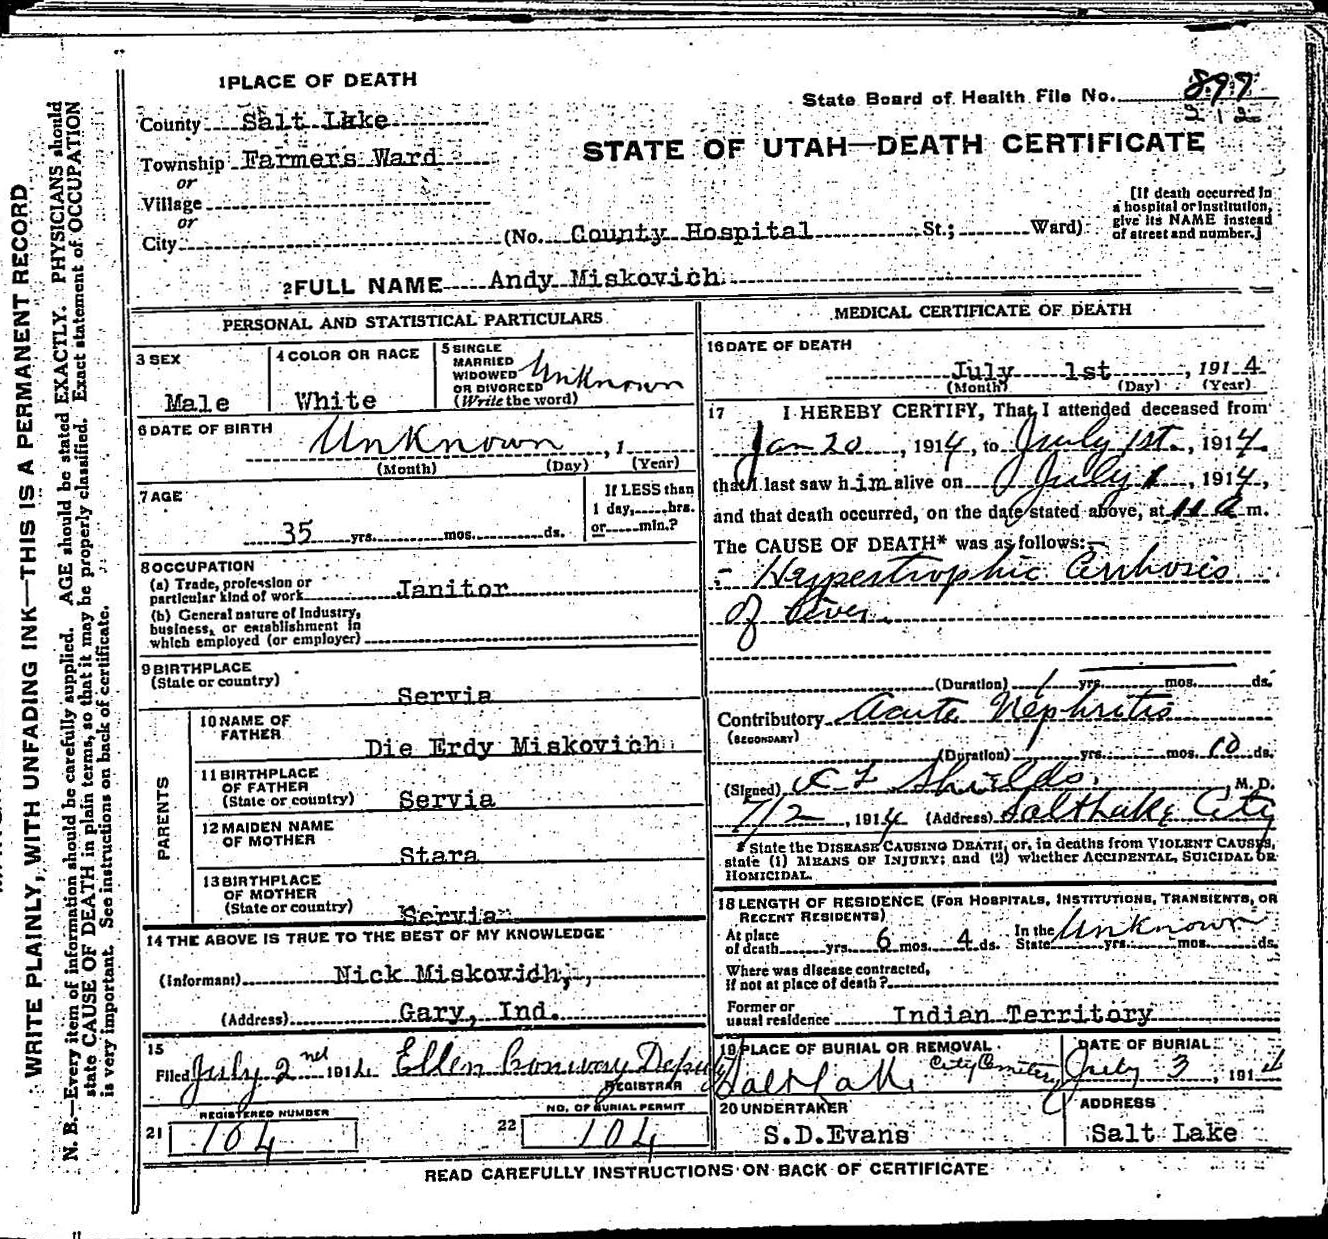 1 PLACE OF DEATH
State Board of Health File No. 899
County Salt Lake
STATE OF UTAH—DEATH CERTIFICATE
Township Farmers Ward
or
Village
or
City (No. County Hospital St.; Ward)
[If death occurred in
a hospital or institution,
give its NAME instead
of street and number.]
2 FULL NAME Andy Miskovich
PERSONAL AND STATISTICAL PARTICULARS
3 SEX
Male
4 COLOR OR RACE
White
5 SINGLE
MARRIED
WIDOWED
OR DIVORCED
(Write the word)
Unknown
6 DATE OF BIRTH
Unknown, 1
(Month) (Day) (Year)
7 AGE
35 yrs. mos. ds.
If LESS than
1 day, hrs.
or min.?
8 OCCUPATION
(a) Trade, profession or
particular kind of work Janitor
(b) General nature of Industry,
business, or establishment in
which employed (or employer)
9 BIRTHPLACE
(State or country)
Servia
PARENTS
10 NAME OF
FATHER
Die Erdy Miskovich
11 BIRTHPLACE
OF FATHER
(State or country) Servia
12 MAIDEN NAME
OF MOTHER
Stara
13 BIRTHPLACE
OF MOTHER
(State or country) Servia
14 THE ABOVE IS TRUE TO THE BEST OF MY KNOWLEDGE
(Informant) Nick Miskovidh,
(Address) Gary, Ind.
15
Filed July 2nd 1914 Ellen Conway Deputy
REGISTRAR
REGISTERED NUMBER
21 104
NO. OF BURIAL PERMIT
22 104
MEDICAL CERTIFICATE OF DEATH
16 DATE OF DEATH
July 1st, 1914
(Month) (Day) (Year)
17 I HEREBY CERTIFY, That I attended deceased from
Jan 20, 1914, to July 1st., 1914.
that I last saw him alive on July 1, 1914,
and that death occurred, on the date stated above, at 11 a m.
The CAUSE OF DEATH* was as follows:
Hypertrophic Cirrhosis
of Liver.
(Duration) 1 yrs. mos. ds.
Contributory Acute Nephritis
(SECONDARY)
(Duration) yrs. mos. 10 ds.
(Signed) Shields, M. D.
7/2, 1914 (Address) Salt Lake City
* State the DISEASE CAUSING DEATH, or, in deaths from VIOLENT CAUSES,
state (1) MEANS OF INJURY; and (2) whether ACCIDENTAL, SUICIDAL OR
HOMICIDAL.
18 LENGTH OF RESIDENCE (FOR HOSPITALS, INSTITUTIONS, TRANSIENTS, OR
RECENT RESIDENTS)
At place
of death yrs. 6 mos. 4 ds.
In the
State Unknown yrs. mos. ds.
Where was disease contracted,
if not at place of death?
Former or
usual residence Indian Territory
19 PLACE OF BURIAL OR REMOVAL
Salt Lake City Cemetery
DATE OF BURIAL
July 3, 1914
20 UNDERTAKER
S.D.Evans
ADDRESS
Salt Lake
READ CAREFULLY INSTRUCTIONS ON BACK OF CERTIFICATE
WRITE PLAINLY, WITH UNFADING INK—THIS IS A PERMANENT RECORD
N. B.—Every item of information should be carefully supplied. AGE should be stated EXACTLY. PHYSICIANS should
state CAUSE OF DEATH in plain terms, so that it may be properly classified. Exact statement of OCCUPATION
is very important. See instructions on back of certificate.